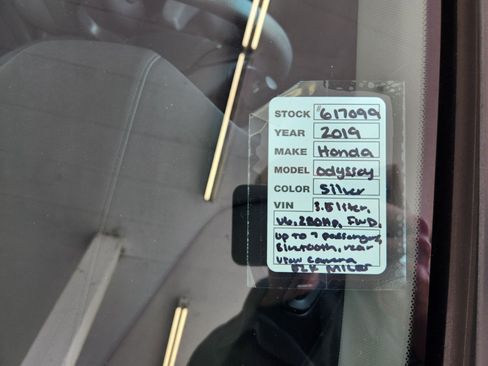 STOCK #617099
YEAR 2019
MAKE Honda
MODEL odyssey
COLOR Silver
VIN 3.5 liter,
V6, 280Hp, FWD,
up to 7 passengers,
Bluetooth, rear
view camera
52K MILES